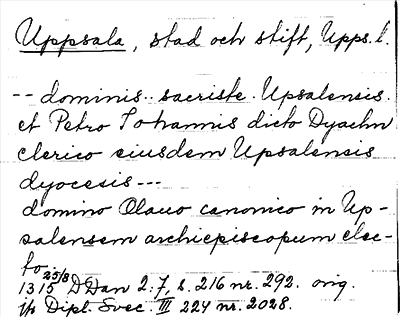 Uppsala, stad och stift, Upps. l.
-- dominis.. sacriste. Upsalensis.
et Petro Johannis dicto Dyaehn
clerico eiusdem Upsalensis
dyocesis ---
domino Olauo canonico in Up-
salensem archiepiscopum elec-
to.
1315 25/8 DDan 2:7, s. 216 nr. 292. orig.
jfr Dipl. Svec. III 224 nr. 2028.